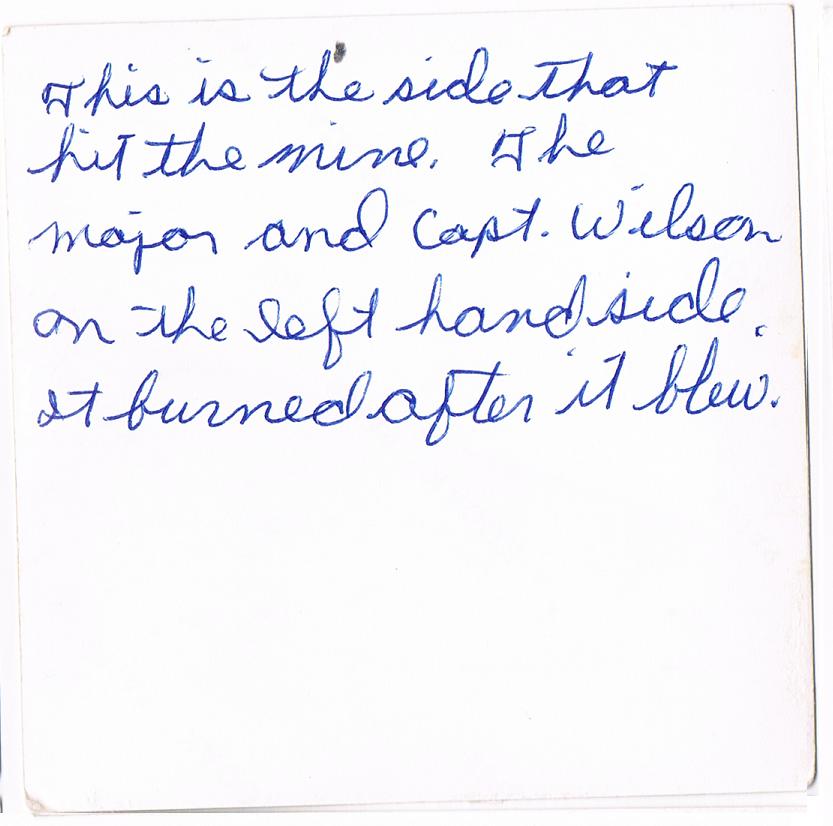 This is the side that
hit the mine. The
major and Capt. Wilson
on the left hand side.
It burned after it blew.